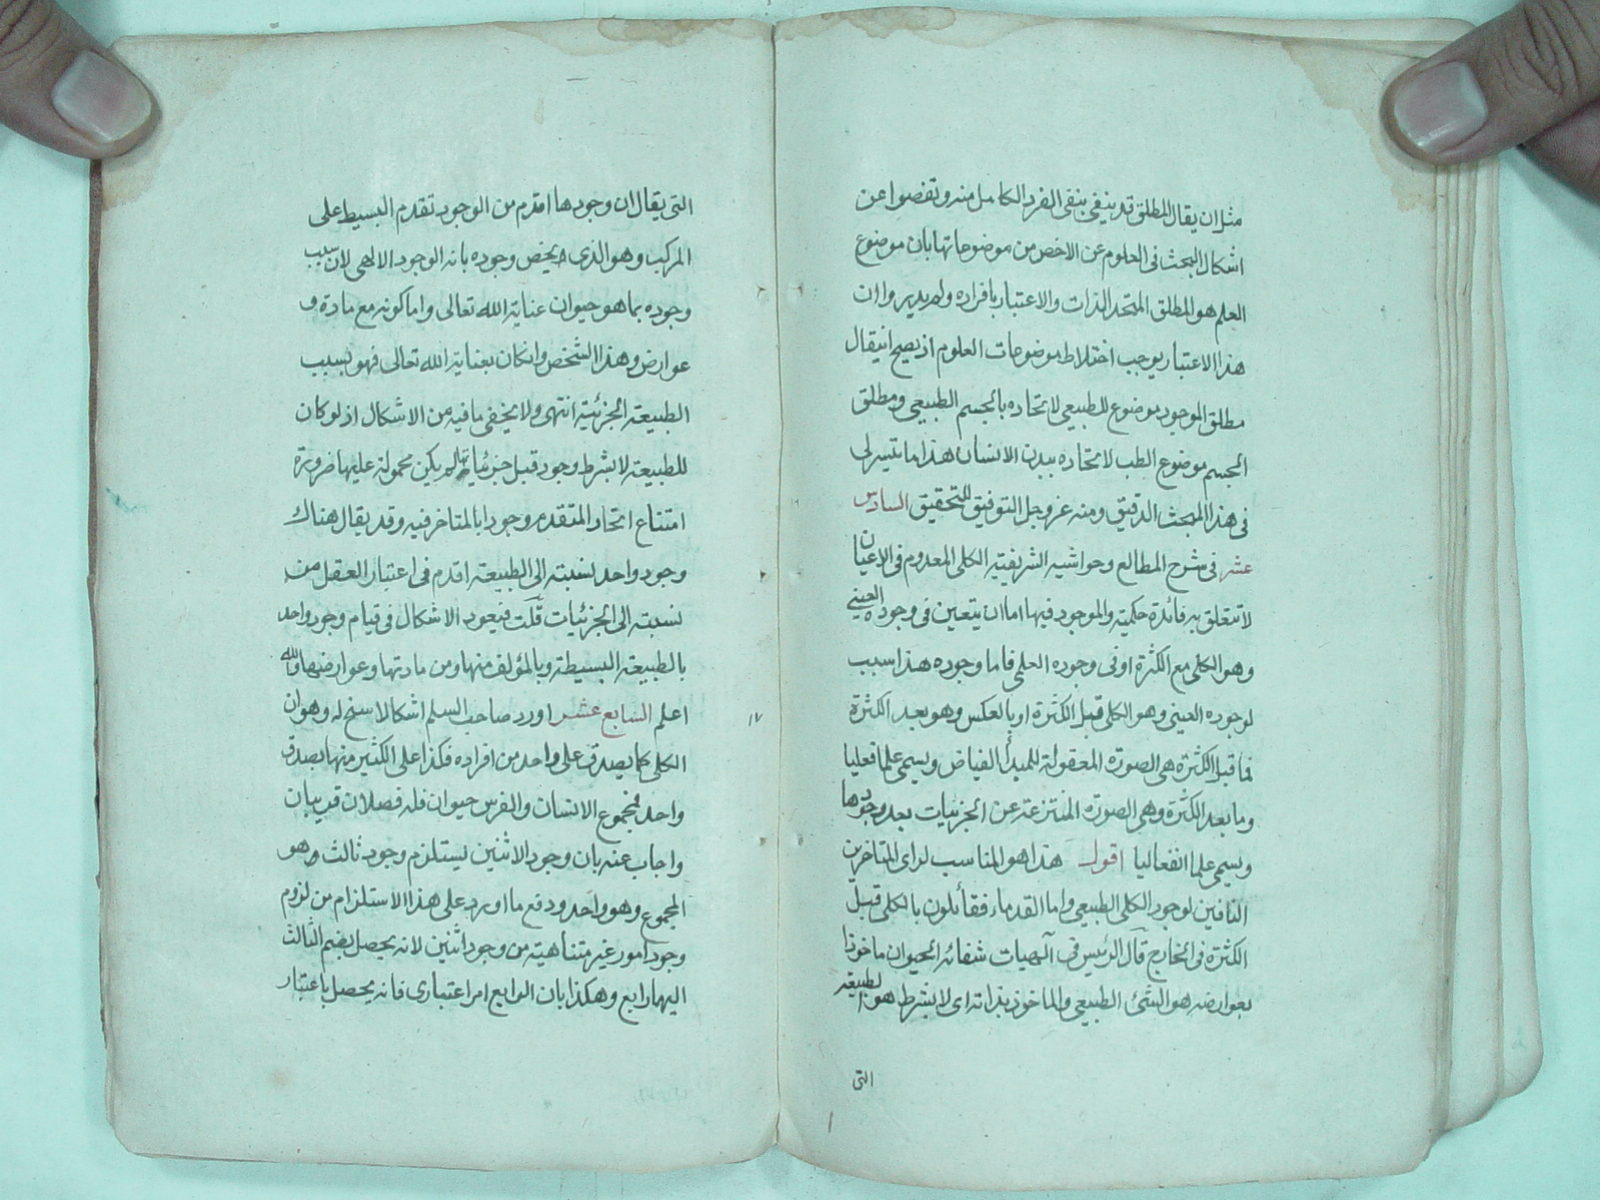 مثل ان يقال المطلق قد ينفي بنفي الفرد الكامل منه وتفصوا عن
اشكال البحث في العلوم عن الاخص من موضوعاتها بان موضوع
العلم هو المطلق المتحد الذات والاعتبار بافراده ولم يدروا ان
هذا الاعتبار يوجب اختلاط موضوعات العلوم اذ يصح انتقال
مطلق الموجود موضوع للطبيعي لاتحاده بالجسم الطبيعي ومطلق
الجسم موضوع الطب لاتحاده ببدن الانسان هذا ما تيسر لي
في هذا المبحث الدقيق ومنه عز وجل التوفيق للتحقيق السادس
عشر في شرح المطالع وحواشيه الشريفية الكلي المعدوم في الاعيان
لا تتعلق به فائدة حكمية والموجود فيها اما ان يتعين في وجوده العيني
وهو الكلي مع الكثرة او في وجوده العلمي فاما وجوده هذا سبب
لوجوده العيني وهو الكلي قبل الكثرة او بالعكس وهو بعد الكثرة
فما قبل الكثرة هي الصورة المعقولة للمبدأ الفياض ويسمى علما فعليا
وما بعد الكثرة وهي الصورة المنتزعة عن الجزئيات بعد وجودها
ويسمى علما انفعاليا اقول هذا هو المناسب لراى المتاخرين
النافين لوجود الكلي الطبيعي واما القدماء فقائلون بالكلي قبل
الكثرة في الخارج قال الرئيس في آلهيات شفائه الحيوان ماخوذا
بعوارضه هو الشئ الطبيعي والماخوذ بذاته اى لا بشرط هو الطبيعة
التي
التي يقال ان وجودها اقدم من الوجود تقدم البسيط على
المركب وهو الذى يخص وجوده بانه الوجود الالهي لان سبب
وجوده بما هو حيوان عناية الله تعالى واما كونه مع مادة و
عوارض وهذا الشخص وان كان بعناية الله تعالى فهو بسبب
الطبيعة الجزئية انتهى ولا يخفى ما فيه من الاشكال اذ لو كان
للطبيعة لا بشرط وجود قبل جزئياتها لم يكن محمولة عليها ضرورة
امتناع اتحاد المتقدم وجودا بالمتاخر فيه وقد يقال هناك
وجود واحد نسبته الى الطبيعة اقدم في اعتبار العقل من
نسبته الى الجزئيات قلت فيعود الاشكال في قيام وجود واحد
بالطبيعة البسيطة وبالمؤلف منها ومن مادتها وعوارضها والله
اعلم السابع عشر اورد صاحب السلم اشكالا سنح له وهو ان
الكلي كما يصدق على واحد من افراده فكذا على الكثير منها بصدق
واحد فمجموع الانسان والفرس حيوان فله فصلان قريبان
واجاب عنه بان وجود الاثنين يستلزم وجود ثالث وهو
المجموع وهو واحد ودفع ما اورد على هذا الاستلزام من لزوم
وجود امور غير متناهية من وجود اثنين لانه يحصل بضم الثالث
اليها رابع وهكذا بان الرابع امر اعتبارى فانه يحصل باعتبار
١٧